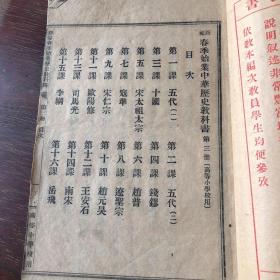 新編
春季始業中華歷史教科書 第三册 (高等小學校用)
目次
第一課 五代(一)
第二課 五代(二)
第三課 十國
第四課 錢鏐
第五課 宋太祖太宗
第六課 趙普
第七課 寇準
第八課 遼聖宗
第九課 宋仁宗
第十課 趙元昊
第十一課 歐陽修
第十二課 王安石
第十三課 司馬光
第十四課 南宋
第十五課 李綱
第十六課 岳飛
書
說明叙述非常豐富
依教本編次教員學生均便參攷